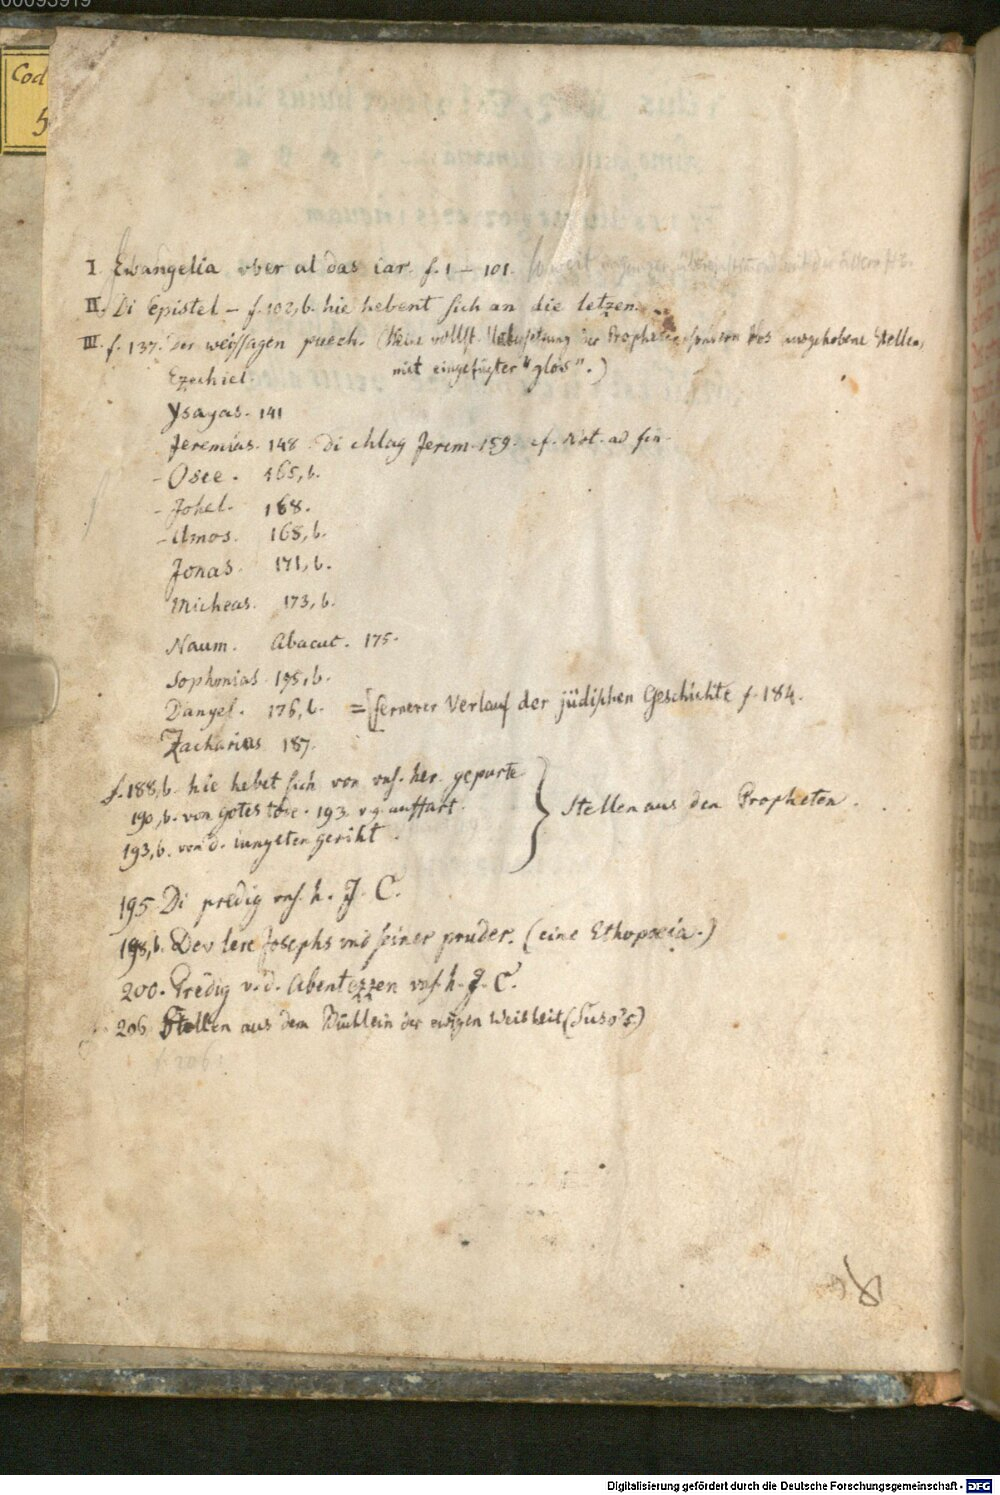 00093919
Cod
5
I. Ewangelia vber al das iar. f. 1 – 101.
II. Di Epistel – f. 102,b. hie hebent sich an die letzen.
III. f. 137. Der weissagen puech. (Keine vollst. Uebersetzung der Propheten, sondern blos ausgehobene Stellen,
mit eingefügter "glos".)
Ezechiel.
Ysayas. 141
Jeremias. 148. Di chlag Jerem. 159. cf. Not. ad fin.
– Osee. 165,b.
– Johel. 168.
– Amos. 168,b.
Jonas. 171,b.
Micheas. 173,b.
Naum. Abacuc. 175.
Sophonias. 195,b.
Danyel. 176,b. = [fernerer Verlauf der jüdischen Geschichte f. 184.
Zacharias 187.
f. 188,b. hie hebet sich von vns. her. gepurte
190,b. von gotes tode. 193. v. g. auffart.
193,b. von d. iungsten geriht.
} Stellen aus den Propheten.
195. Di predig vns. h. J. C.
198,b. Dev lere Josephs vnd seiner pruder. (eine Ethopoeia.)
200. Predig v. d. Abentezzen vns. h. J. C.
206 Stellen aus dem Büchlein der ewigen Weisheit (Suso's)
f. 206
Digitalisierung gefördert durch die Deutsche Forschungsgemeinschaft - DFG